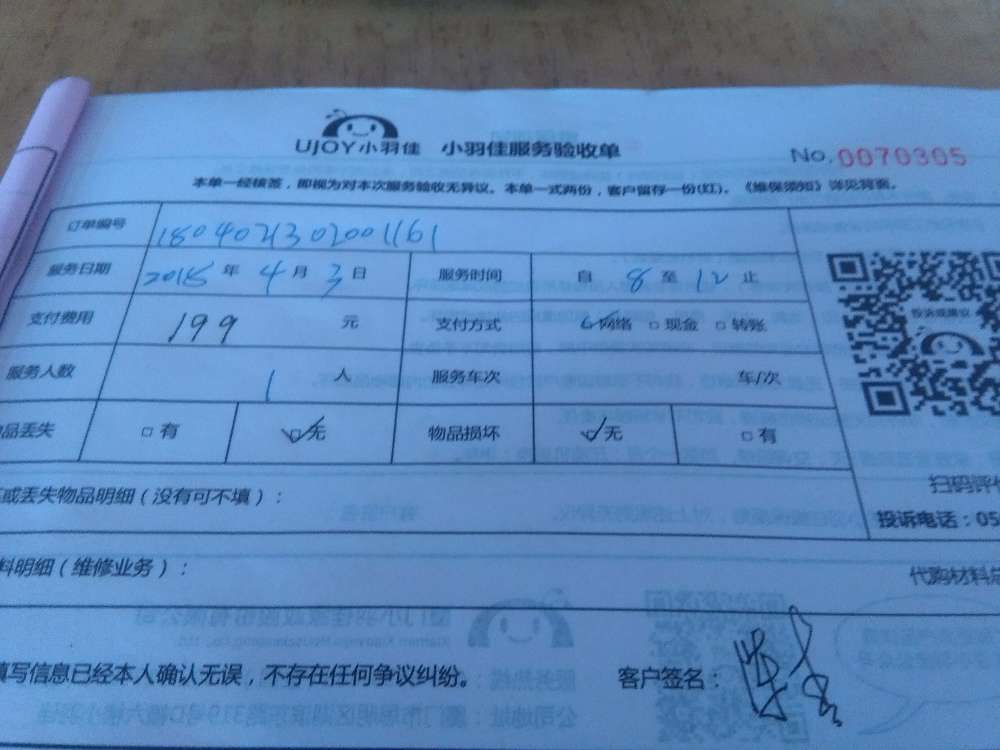 UJOY小羽佳 小羽佳服务验收单 No.0070305
本单一经核签，即视为对本次服务验收无异议。本单一式两份，客户留存一份(红)。《维保须知》详见背面。
订单编号 1804021302001161
服务日期 2018 年 4 月 3 日 服务时间 自 8 至 12 止
支付费用 199 元 支付方式 网络 现金 转账
服务人数 1 人 服务车次 车/次
品丢失 有 无 物品损坏 无 有
投诉或建议
或丢失物品明细（没有可不填）：
扫码评
投诉电话：05
料明细（维修业务）：
代购材料总
填写信息已经本人确认无误，不存在任何争议纠纷。 客户签名：